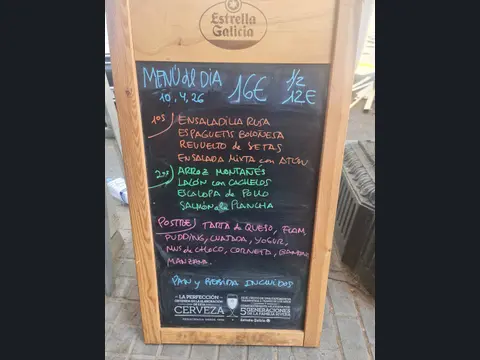 Estrella
Galicia
MENÚ del DIA 16€ 1/2
10.4.26 12€
1os) ENSALADILLA RUSA
ESPAGUETIS BOLOÑESA
REVUELTO de SETAS
ENSALADA MIXTA con ATÚN
2os) ARROZ MONTAÑÉS
LACÓN con CACHELOS
ESCALOPA de POLLO
SALMÓN a PLANCHA
POSTRE) TARTA de QUESO, FLAM,
PUDDING, CUAJADA, YOGUR,
MUS de CHOCO, CORNETO,
MANZANA.
PAN y BEBIDA INCLUIDOS
LA PERFECCIÓN
CERVEZA
5 GENERACIONES
DE LA FAMILIA RIVERA
Estrella Galicia